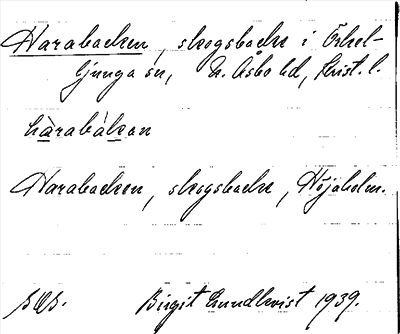 Harabacken, skogsbacke i Örkel-
ljunga sn, N. Åsbo hd, Krist. l.
hàrabákan
Harabacken, skogsbacke, Höjaholm.
Birgit Lundkvist 1939.